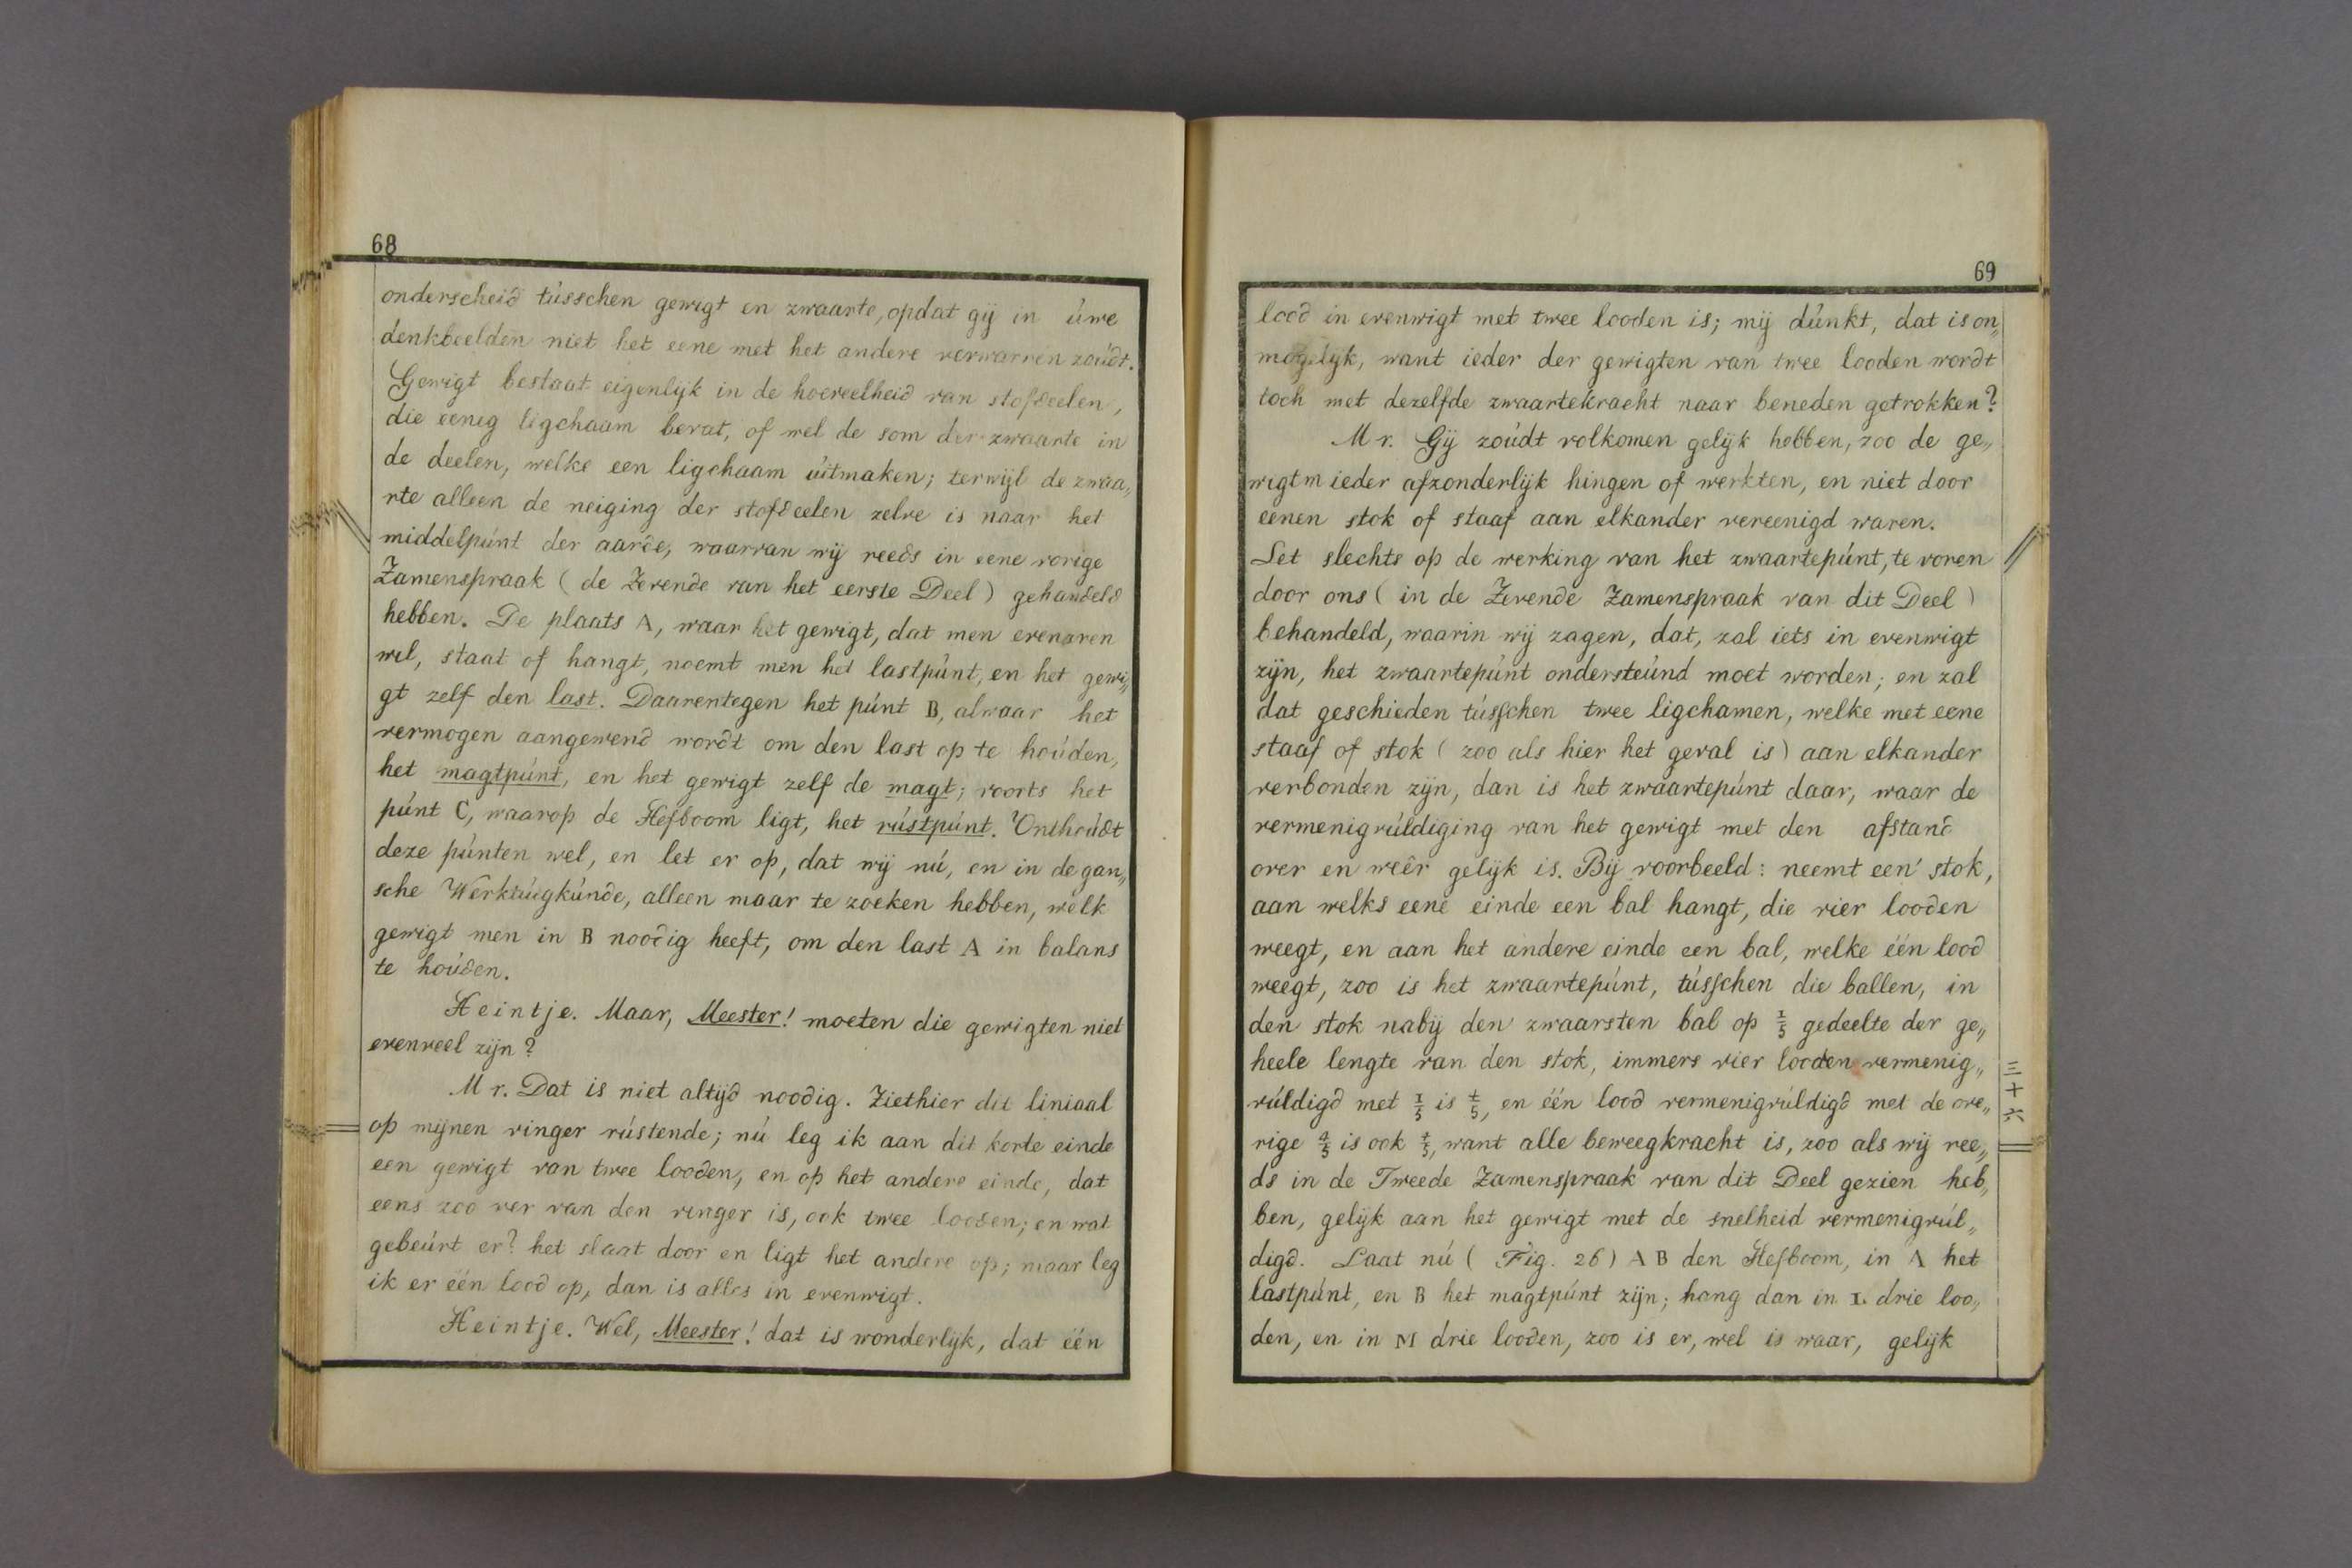 68
onderscheid tússchen gewigt en zwaarte, opdat gij in úwe
denkbeelden niet het eene met het andere verwarren zoúdt.
Gewigt bestaat eigenlijk in de hoeveelheid van stofdeelen,
die eenig ligchaam bevat, of wel de som der zwaarte in
de deelen, welke een ligchaam úitmaken; terwijl de zwaa„
rte alleen de neiging der stofdeelen zelve is naar het
middelpúnt der aarde, waarvan wij reeds in eene vorige
Zamenspraak (de Zevende van het eerste Deel) gehandeld
hebben. De plaats A, waar het gewigt, dat men evenaren
wil, staat of hangt, noemt men het lastpúnt, en het gewi„
gt zelf den last. Daarentegen het púnt B, alwaar het
vermogen aangewend wordt om den last op te hoúden,
het magtpúnt, en het gewigt zelf de magt; voorts het
púnt C, waarop de Hefboom ligt, het rústpúnt. Onthoúdt
deze púnten wel, en let er op, dat wij nú, en in de gan„
sche Werktúigkúnde, alleen maar te zoeken hebben, welk
gewigt men in B noodig heeft, om den last A in balans
te hoúden.
Heintje. Maar, Meester! moeten die gewigten niet
evenveel zijn?
Mr. Dat is niet altijd noodig. Ziethier dit liniaal
op mijnen vinger rústende; nú leg ik aan dit korte einde
een gewigt van twee looden, en op het andere einde, dat
eens zoo ver van den vinger is, ook twee looden; en wat
gebeúrt er? het slaat door en ligt het andere op; maar leg
ik er één lood op, dan is alles in evenwigt.
Heintje. Wel, Meester! dat is wonderlijk, dat één
69
lood in evenwigt met twee looden is; mij dúnkt, dat is on„
mogelijk, want ieder der gewigten van twee looden wordt
toch met dezelfde zwaartekracht naar beneden getrokken?
Mr. Gij zoúdt volkomen gelijk hebben, zoo de ge„
wigtm ieder afzonderlijk hingen of werkten, en niet door
eenen stok of staaf aan elkander vereenigd waren.
Let slechts op de werking van het zwaartepúnt, te voren
door ons (in de Zevende Zamenspraak van dit Deel)
behandeld, waarin wij zagen, dat, zal iets in evenwigt
zijn, het zwaartepúnt ondersteúnd moet worden; en zal
dat geschieden tússchen twee ligchamen, welke met eene
staaf of stok (zoo als hier het geval is) aan elkander
verbonden zijn, dan is het zwaartepúnt daar, waar de
vermenigvúldiging van het gewigt met den afstand
over en weêr gelijk is. Bij voorbeeld: neemt een' stok,
aan welks eene einde een bal hangt, die vier looden
weegt, en aan het andere einde een bal, welke één lood
weegt, zoo is het zwaartepúnt, tússchen die ballen, in
den stok nabij den zwaarsten bal op 1/5 gedeelte der ge„
heele lengte van den stok, immers vier looden vermenig„
vúldigd met 1/5 is 4/5, en één lood vermenigvúldigd met de ove„
rige 4/5 is ook 4/5, want alle beweegkracht is, zoo als wij ree„
ds in de Tweede Zamenspraak van dit Deel gezien heb„
ben, gelijk aan het gewigt met de snelheid vermenigvúl„
digd. Laat nú (Fig. 26) A B den Hefboom, in A het
lastpúnt, en B het magtpúnt zijn; hang dan in L drie loo„
den, en in M drie looden, zoo is er, wel is waar, gelijk
三十六